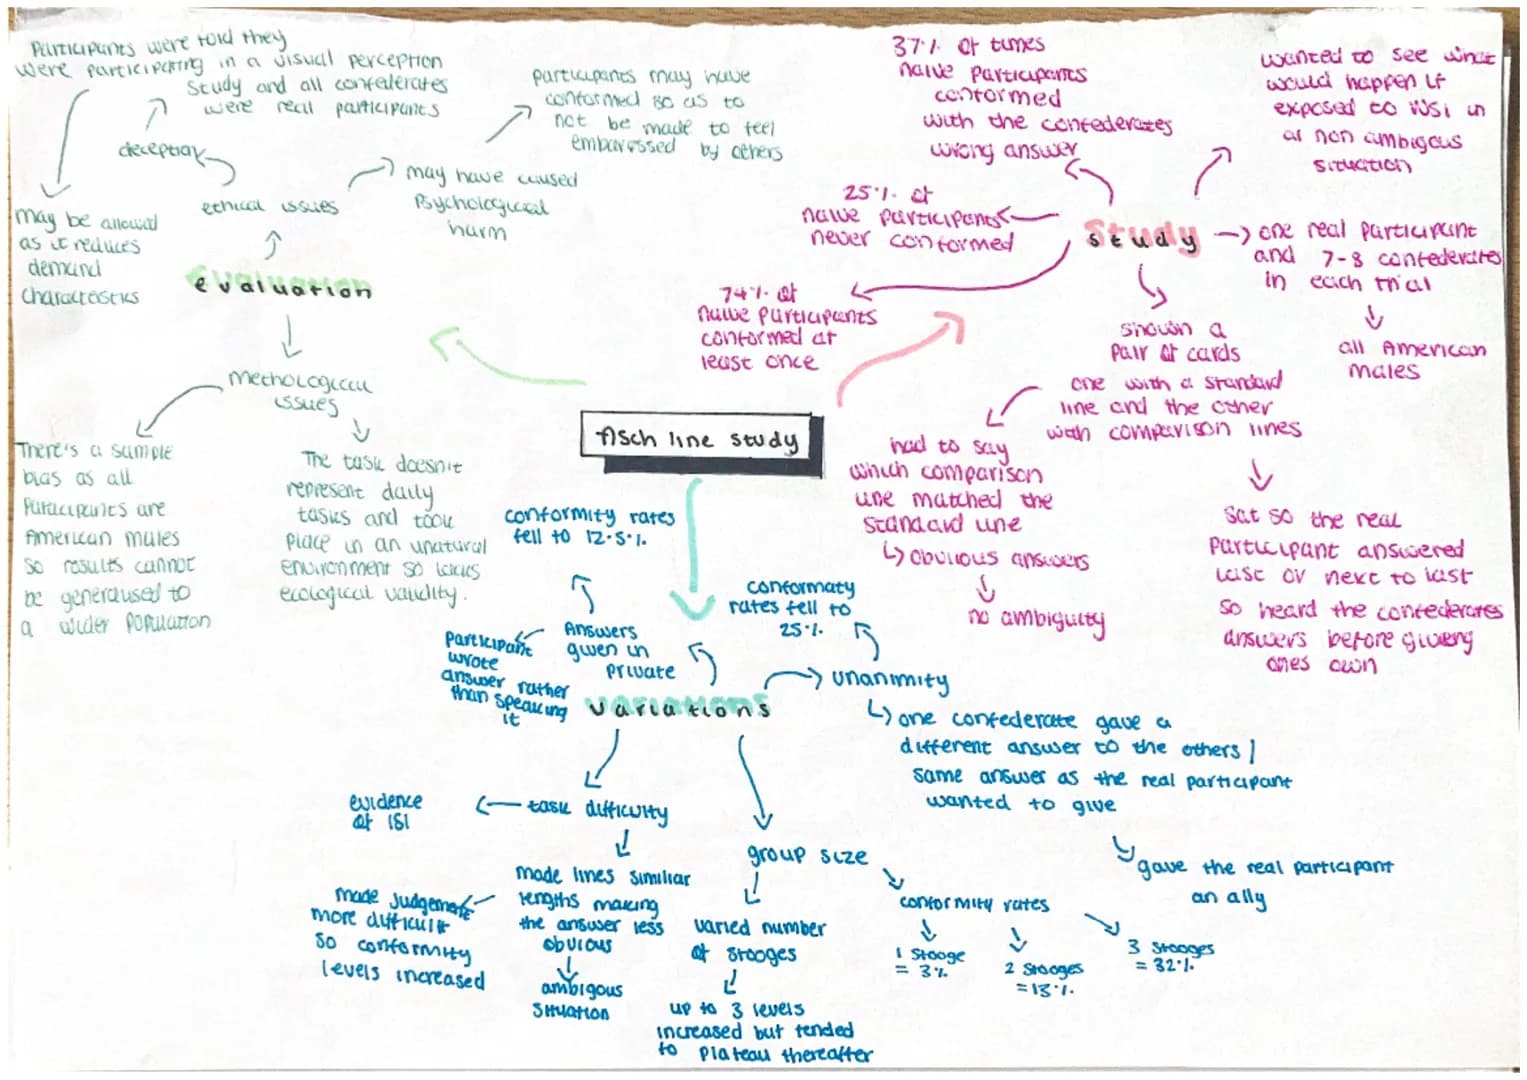 Asch line study
Study
wanted to see what
would happen if
exposed to NSI in
a non ambigous
situation
one real participant
and 7-8 confederates
in each trial
all American
males
shown a
pair of cards
one with a standard
line and the other
with comparison lines
had to say
which comparison
line matched the
standard line
obvious answers
no ambiguity
sat so the real
participant answered
last or next to last
so heard the confederates
answers before giving
ones own
37% of times
naive participants
conformed
with the confederates
wrong answer
25% of
naive participants
never conformed
74% of
naive participants
conformed at
least once
evaluation
ethical issues
deception
Participants were told they
were participating in a visual perception
study and all confederates
were real participants
may be allowed
as it reduces
demand
characteristics
may have caused
psychological
harm
participants may have
conformed so as to
not be made to feel
embarossed by others
methological
issues
There's a sample
bias as all
participants are
American males
so results cannot
be generalised to
a wider population
The task doesn't
represent daily
tasks and took
place in an unatural
environment so lacks
ecological validity.
variations
Answers
given in
private
conformity rates
fell to 12.5%
participant
wrote
answer rather
than speaking
it
unanimity
conformaty
rates fell to
25%
one confederate gave a
different answer to the others /
same answer as the real participant
wanted to give
gave the real participant
an ally
task difficulty
evidence
of ISI
made lines similiar
lengths making
the answer less
obvious
ambigous
situation
made judgement
more difficult
so conformity
levels increased
group size
varied number
of stooges
up to 3 levels
increased but tended
to plateau thereafter
conformity rates
1 stooge
= 3%
2 stooges
= 13%
3 stooges
= 32%